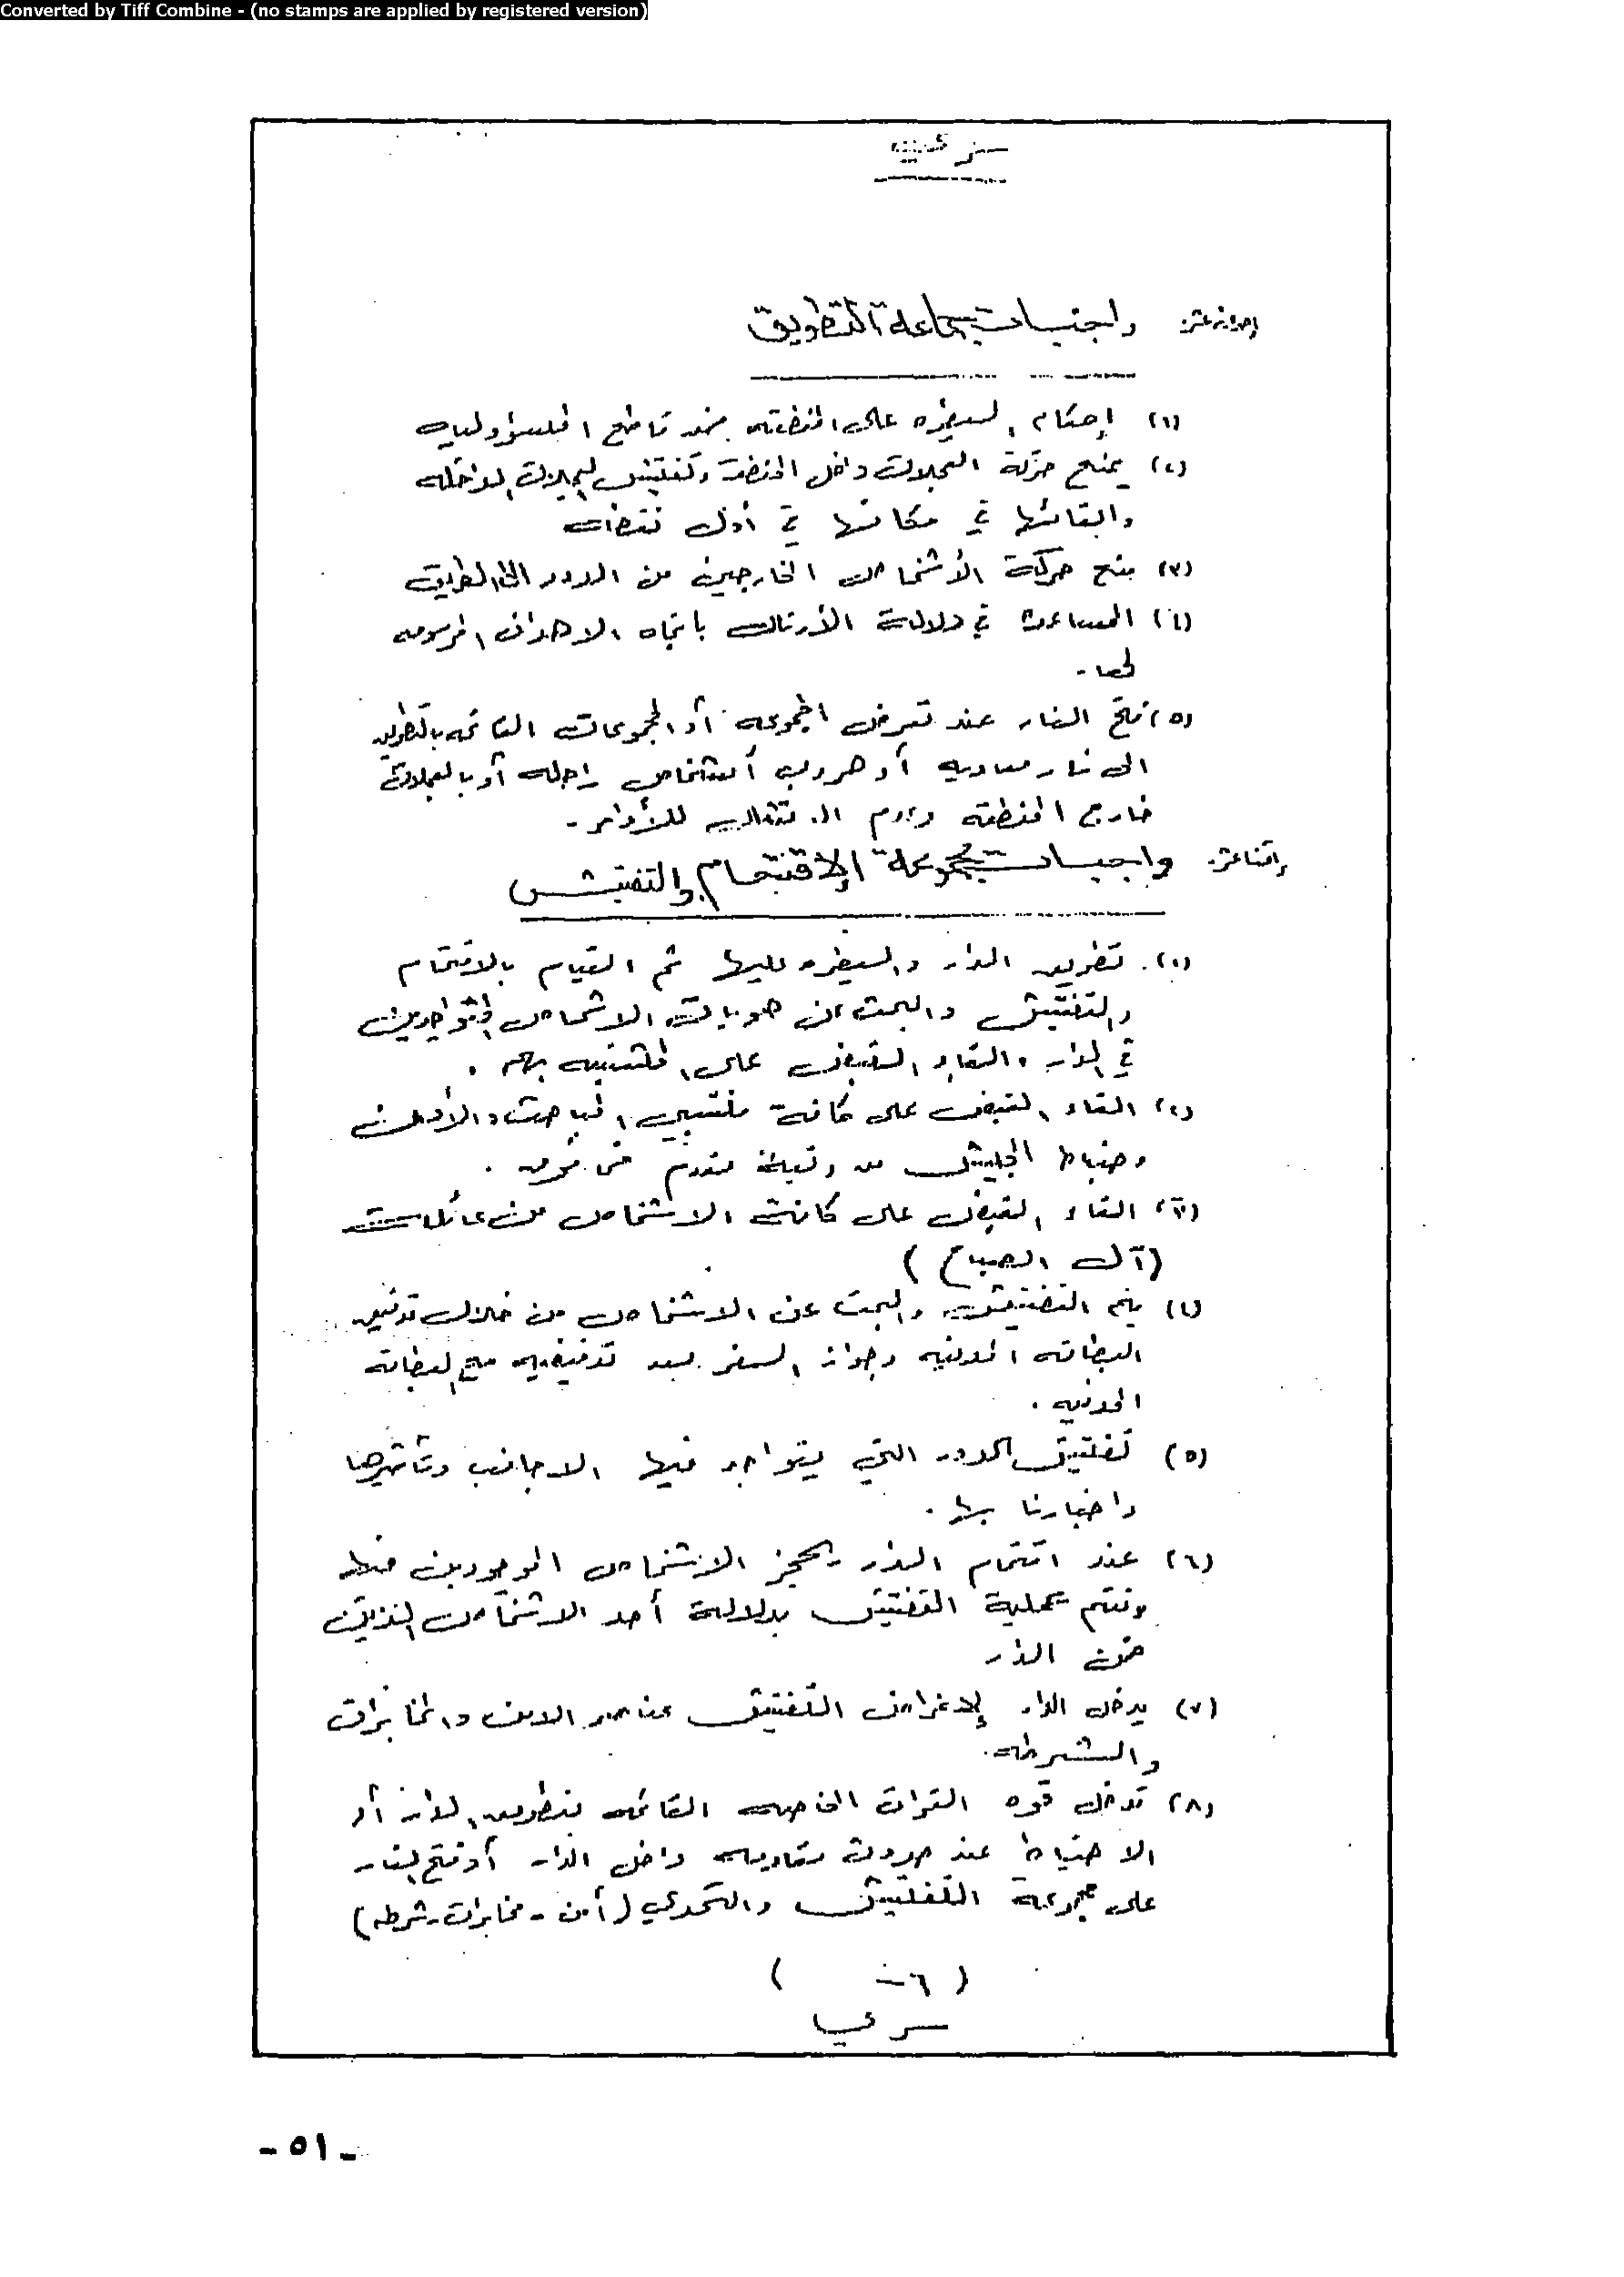 Converted by Tiff Combine - (no stamps are applied by registered version)
سري
احدى عشر. واجبات جماعة التطويق
(١) إحكام السيطره على المنطقه ضمن قاطع المسؤوليه
(٢) يمنع حركة العجلات داخل المنطقة وتفتيش العجلات الداخله
وابقائها في مكانها في
(٣) منع حركة الأشخاص الخارجين من الدور الى الطريق
(٤) المساعدة في دلالة الأرتال باتجاه الاهداف المرسومه
لها -
(٥) فتح النار عند تعرض المجموعه أو المجموعات القائمه بالتطويق
الى نار معاديه أو هروب أشخاص راجله أو بالعجلات
خارج المنطقه وعدم الامتثال للأوامر -
إثنا عشر. واجبات مجموعة الإقتحام والتفتيش
(١). تطويق الدار والسيطره عليها ثم القيام بالاقتحام
والتفتيش والبحث عن هويات الاشخاص المتواجدين
في الدار والقاء القبض على المشتبه بهم .
(٢) القاء القبض على كافة منتسبي المباحث والأمن
وضباط الجيش من رتبة مقدم فما فوق .
(٣) القاء القبض على كافة الاشخاص من عائلة
(آل الصباح)
(٤) يتم التفتيش والبحث عن الاشخاص من خلال تدقيق
البطاقه المدنيه وجواز السفر بعد تدقيقه مع البطاقه
المدنيه .
(٥) تفتيش الدور التي يتواجد فيها الاجانب وتأشيرها
واخبارنا بها .
(٦) عند اقتحام الدار يحجز الاشخاص الموجودين فيها
وتتم عملية التفتيش بدلالة أحد الاشخاص
ضمن الدار
(٧) يدخل الدار لإغراض التفتيش عناصر الامن والمخابرات
والشرطه.
(٨) تدخل قوه القوات الخاصه القائمه بتطويق الدار أو
الاحتياط عند حدوث مقاومه داخل الدار أو فتح النار
على مجموعة التفتيش والتحري (أمن - مخابرات - شرطه)
(٦ - )
سري
- ٥١ -